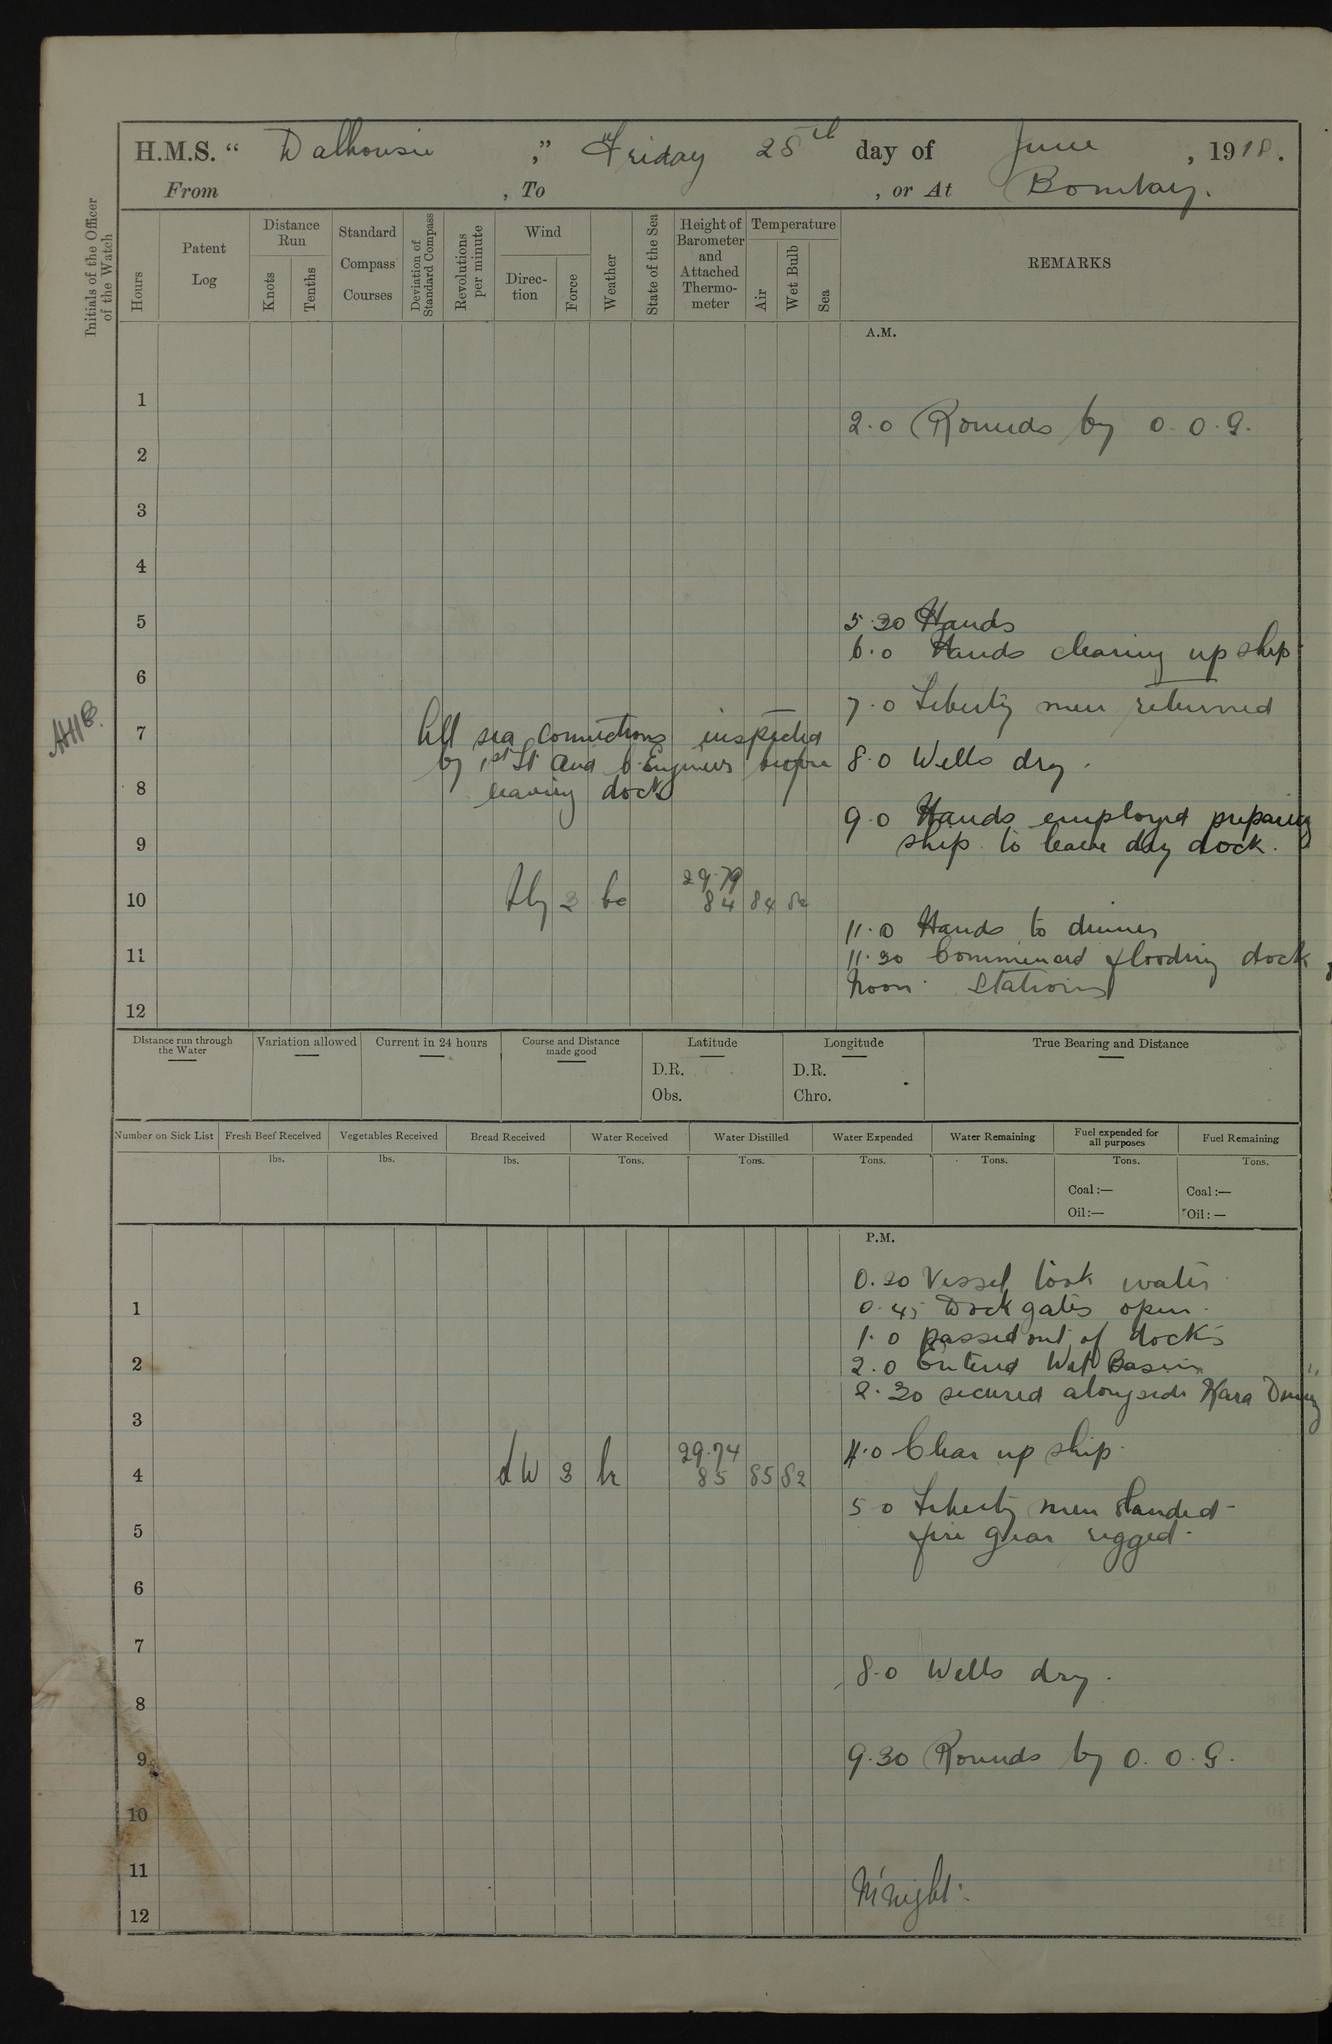 H.M.S. “ Dalhousie ,” Friday 28th day of June , 1918.
From , To , or At Bombay.
Initials of the Officer of the Watch
Hours
Patent Log
Distance Run
Knots
Tenths
Standard Compass Courses
Deviation of Standard Compass
Revolutions per minute
Wind
Direction
Force
Weather
State of the Sea
Height of Barometer and Attached Thermometer
Temperature
Air
Wet Bulb
Sea
REMARKS
A.M.
1
2.0 Rounds by O.O.G.
2
3
4
5
5.30 Hands
6.0 Hands clearing up ship
6
7.0 Liberty men returned
AHB.
7
All sea connections inspected
by 1st Lt and C. Engineer before
leaving dock
8.0 Wells dry.
8
9.0 Hands employed preparing
ship to leave dry dock.
9
10 3 bc 29.79
84 84 82
11.0 Hands to dinner
11
11.30 Commenced flooding dock
Noon. Stations
12
Distance run through the Water
Variation allowed
Current in 24 hours
Course and Distance made good
Latitude
D.R.
Obs.
Longitude
D.R.
Chro.
True Bearing and Distance
Number on Sick List
Fresh Beef Received
lbs.
Vegetables Received
lbs.
Bread Received
lbs.
Water Received
Tons.
Water Distilled
Tons.
Water Expended
Tons.
Water Remaining
Tons.
Fuel expended for all purposes
Tons.
Coal:—
Oil:—
Fuel Remaining
Tons.
Coal:—
Oil:—
P.M.
0.30 Vessel took water
1
0.45 Dock gates open.
1.0 passed out of docks
2
2.0 Entered Wet Basin
2.30 secured alongside
3
4.0 Clear up ship.
4 3 29.74
85 85 82
5.0 Liberty men landed
fire gear rigged.
5
6
7
8.0 Wells dry.
8
9
9.30 Rounds by O.O.G.
10
11
M'night.
12